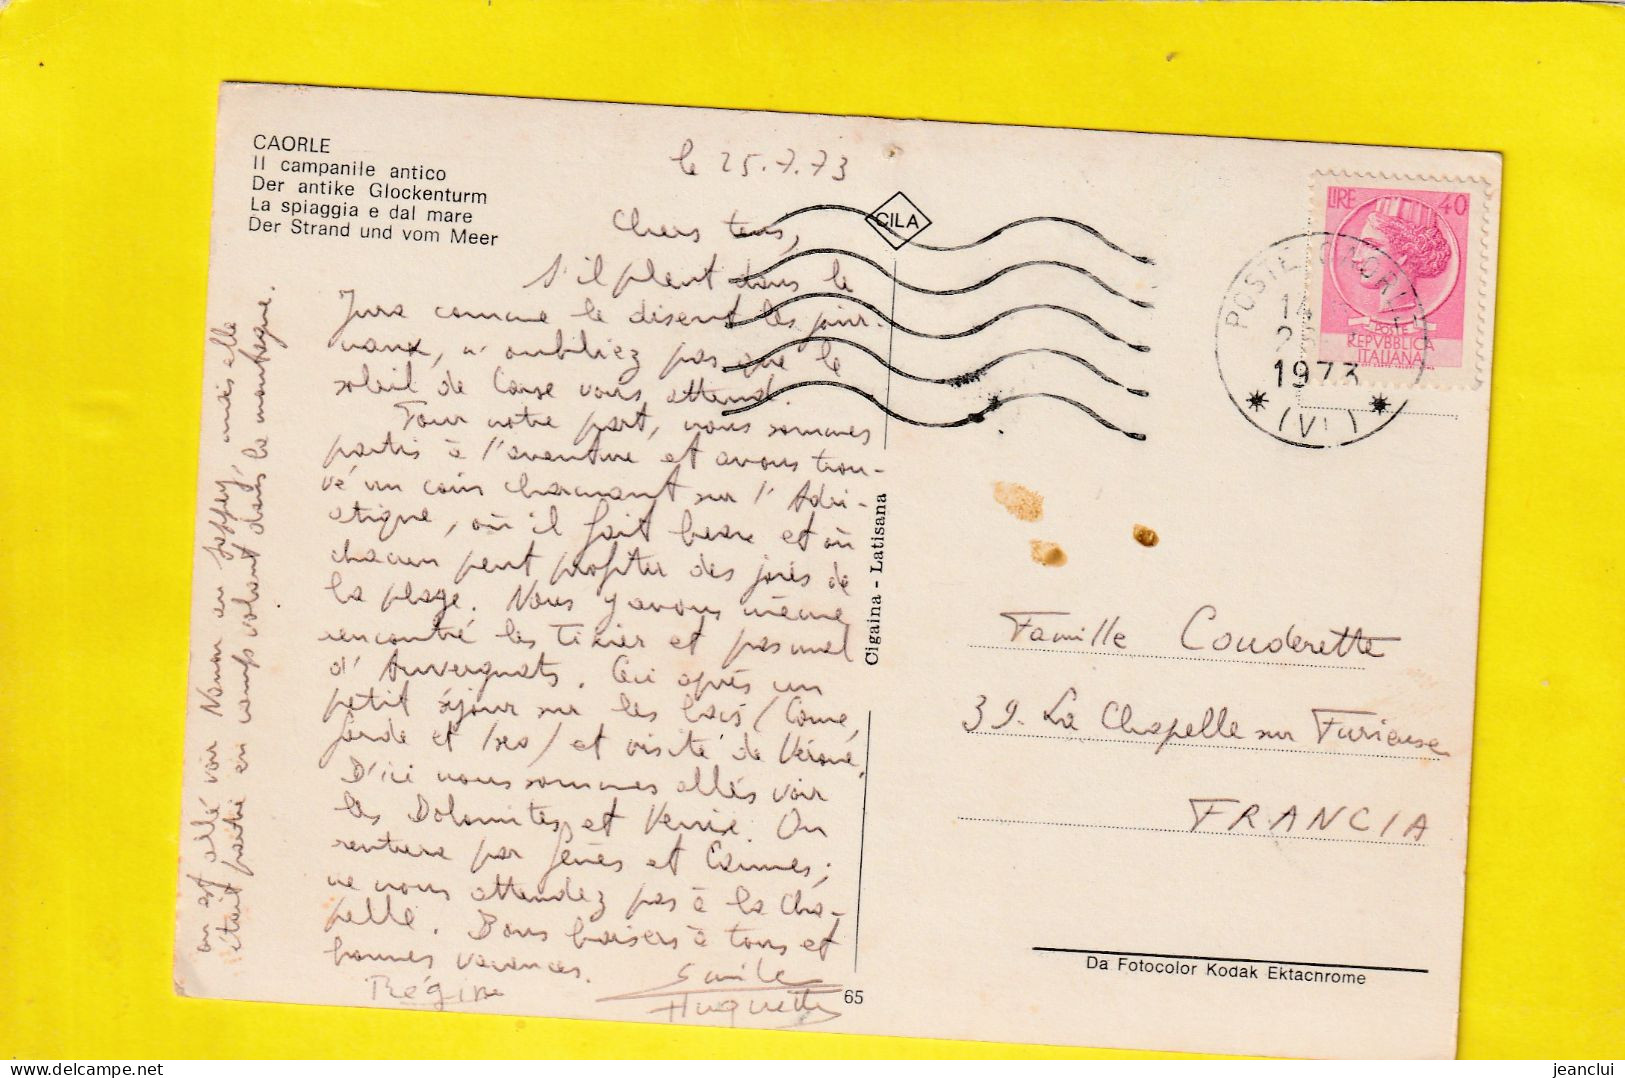 CAORLE
Il campanile antico
Der antike Glockenturm
La spiaggia e dal mare
Der Strand und vom Meer
le 25.7.73
Chers tous,
S'il pleut dans le
Jura comme le disent les jour-
naux, n'oubliez pas que le
soleil de Corse vous attend.
Pour notre part, nous sommes
partis à l'aventure et avons trou-
vé un coin charmant sur l'Adri-
atique, où il fait beau et où
chacun peut profiter des joies de
la plage. Nous y avons même
rencontré les Tixier et pas mal
d'Auvergnats. Ceci après un
petit séjour sur les lacs (Come,
Garde et Iseo) et visité de Vérone.
D'ici nous sommes allés voir
les Dolomites et Venise. On
rentrera par Gênes et Cannes;
ne nous attendez pas à la Cha-
pelle. Bons baisers à tous et
bonnes vacances.
Régine
Emile
Huguette
on est allé voir Nanou en mais elle
était partie en camp volant dans la montagne.
CILA
Cigaina - Latisana
65
LIRE 40
POSTE
REPVBBLICA
ITALIANA
POSTE
14
2
1973
(V )
Famille Couderette
39. La Chapelle sur Furieuse
FRANCIA
Da Fotocolor Kodak Ektachrome
jeanclui